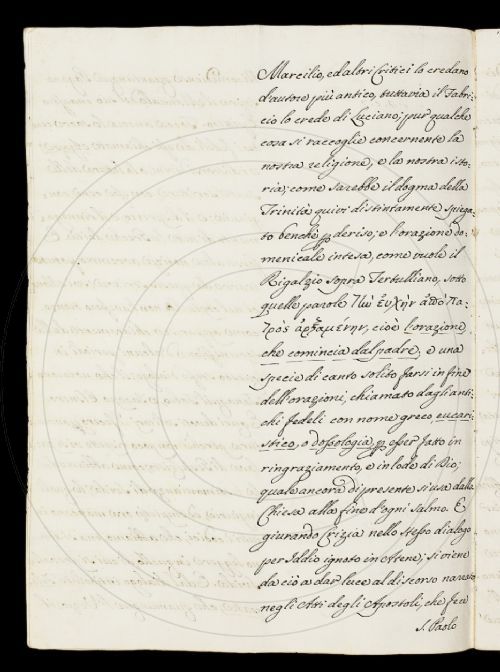 Marcilio, ed altri Critici lo credano
d'autore più antico, tuttavia il Fabri-
cio lo crede di Luciano; pur qualche
cosa si raccoglie concernente la
nostra religione, e la nostra isto-
ria; come sarebbe il dogma della
Trinità quivi distintamente spiega-
to benchè p deriso; e l'orazione do-
menicale intesa, come vuole il
Rigalzio sopra Tertulliano, sotto
quelle parole Τὴν ἐυχὴν ἀπὸ Πα-
τρὸς ἀρξάμενην, cioè l'orazione,
che comincia dal padre, e una
specie di canto solito farsi in fine
dell'orazioni, chiamato dagli anti-
chi fedeli con nome greco eucari-
stico, o dossologia, p esser fatto in
ringraziamento, e in lode di Dio;
quale ancora di presente si usa dalla
Chiesa alla fine d'ogni salmo. E
giurando Crizia nello stesso dialogo
per Iddio ignoto in Atene; si viene
da ciò a dar luce al discorso narrato
negli Atti degli Apostoli, che fece
S. Paolo